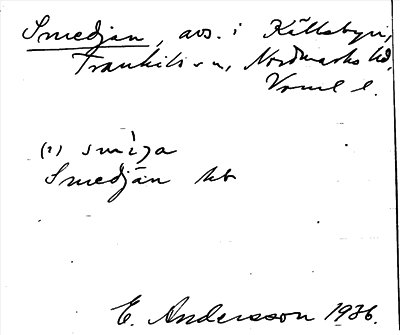 Smedjan, avs. i Källsbyn,
Frankils s-n, Nordmarks hd,
Vrml l.
(i) smìȷa
Smedjän htb
E. Andersson 1936.